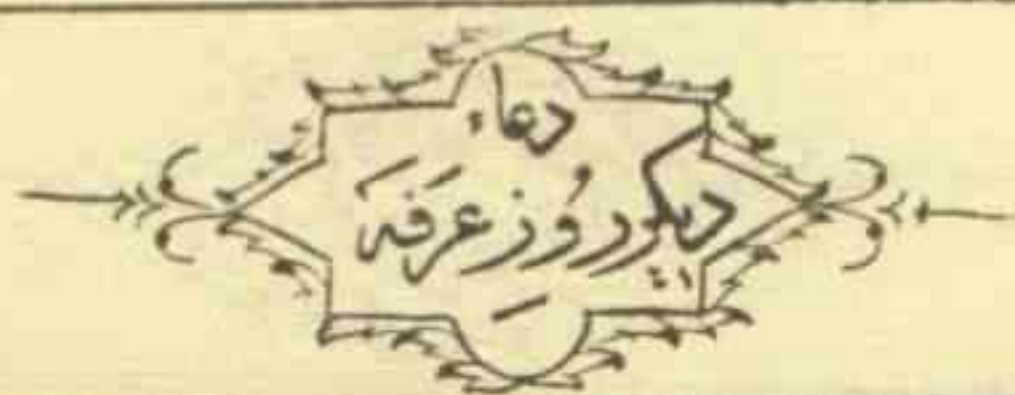 دعاء
دیگر روُز عَرَفَہ